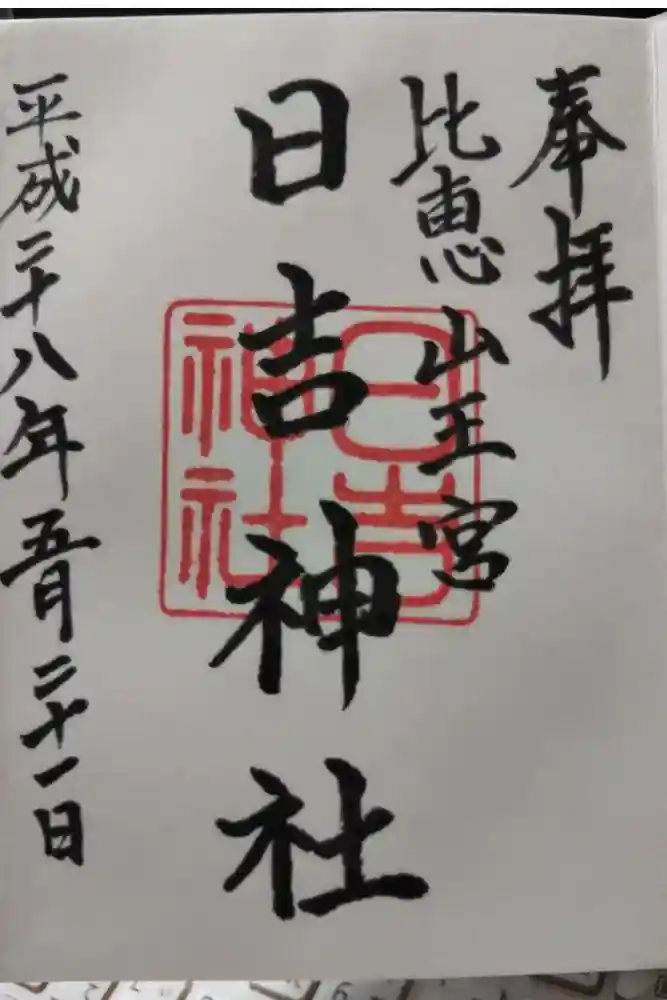 奉拝
比恵山王宮
日吉神社
日吉神社
平成二十八年五月二十一日